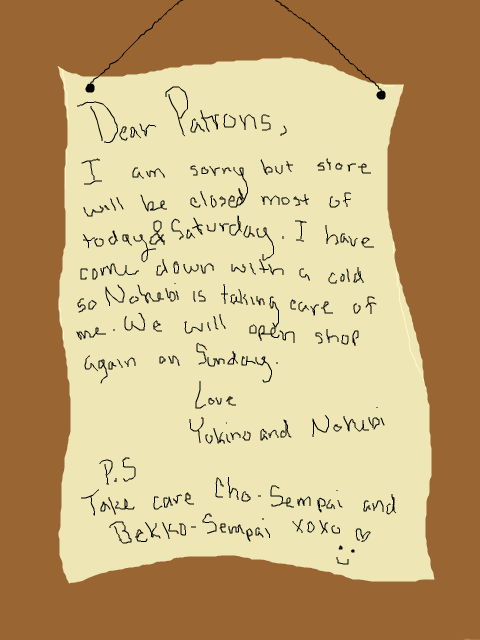 Dear Patrons,
I am sorry but store
will be closed most of
today & Saturday. I have
come down with a cold
so Nohebi is taking care of
me. We will open shop
again on Sunday.
Love
Yukino and Nohebi
P.S
Take care Cho-Sempai and
Bekko-Sempai xoxo